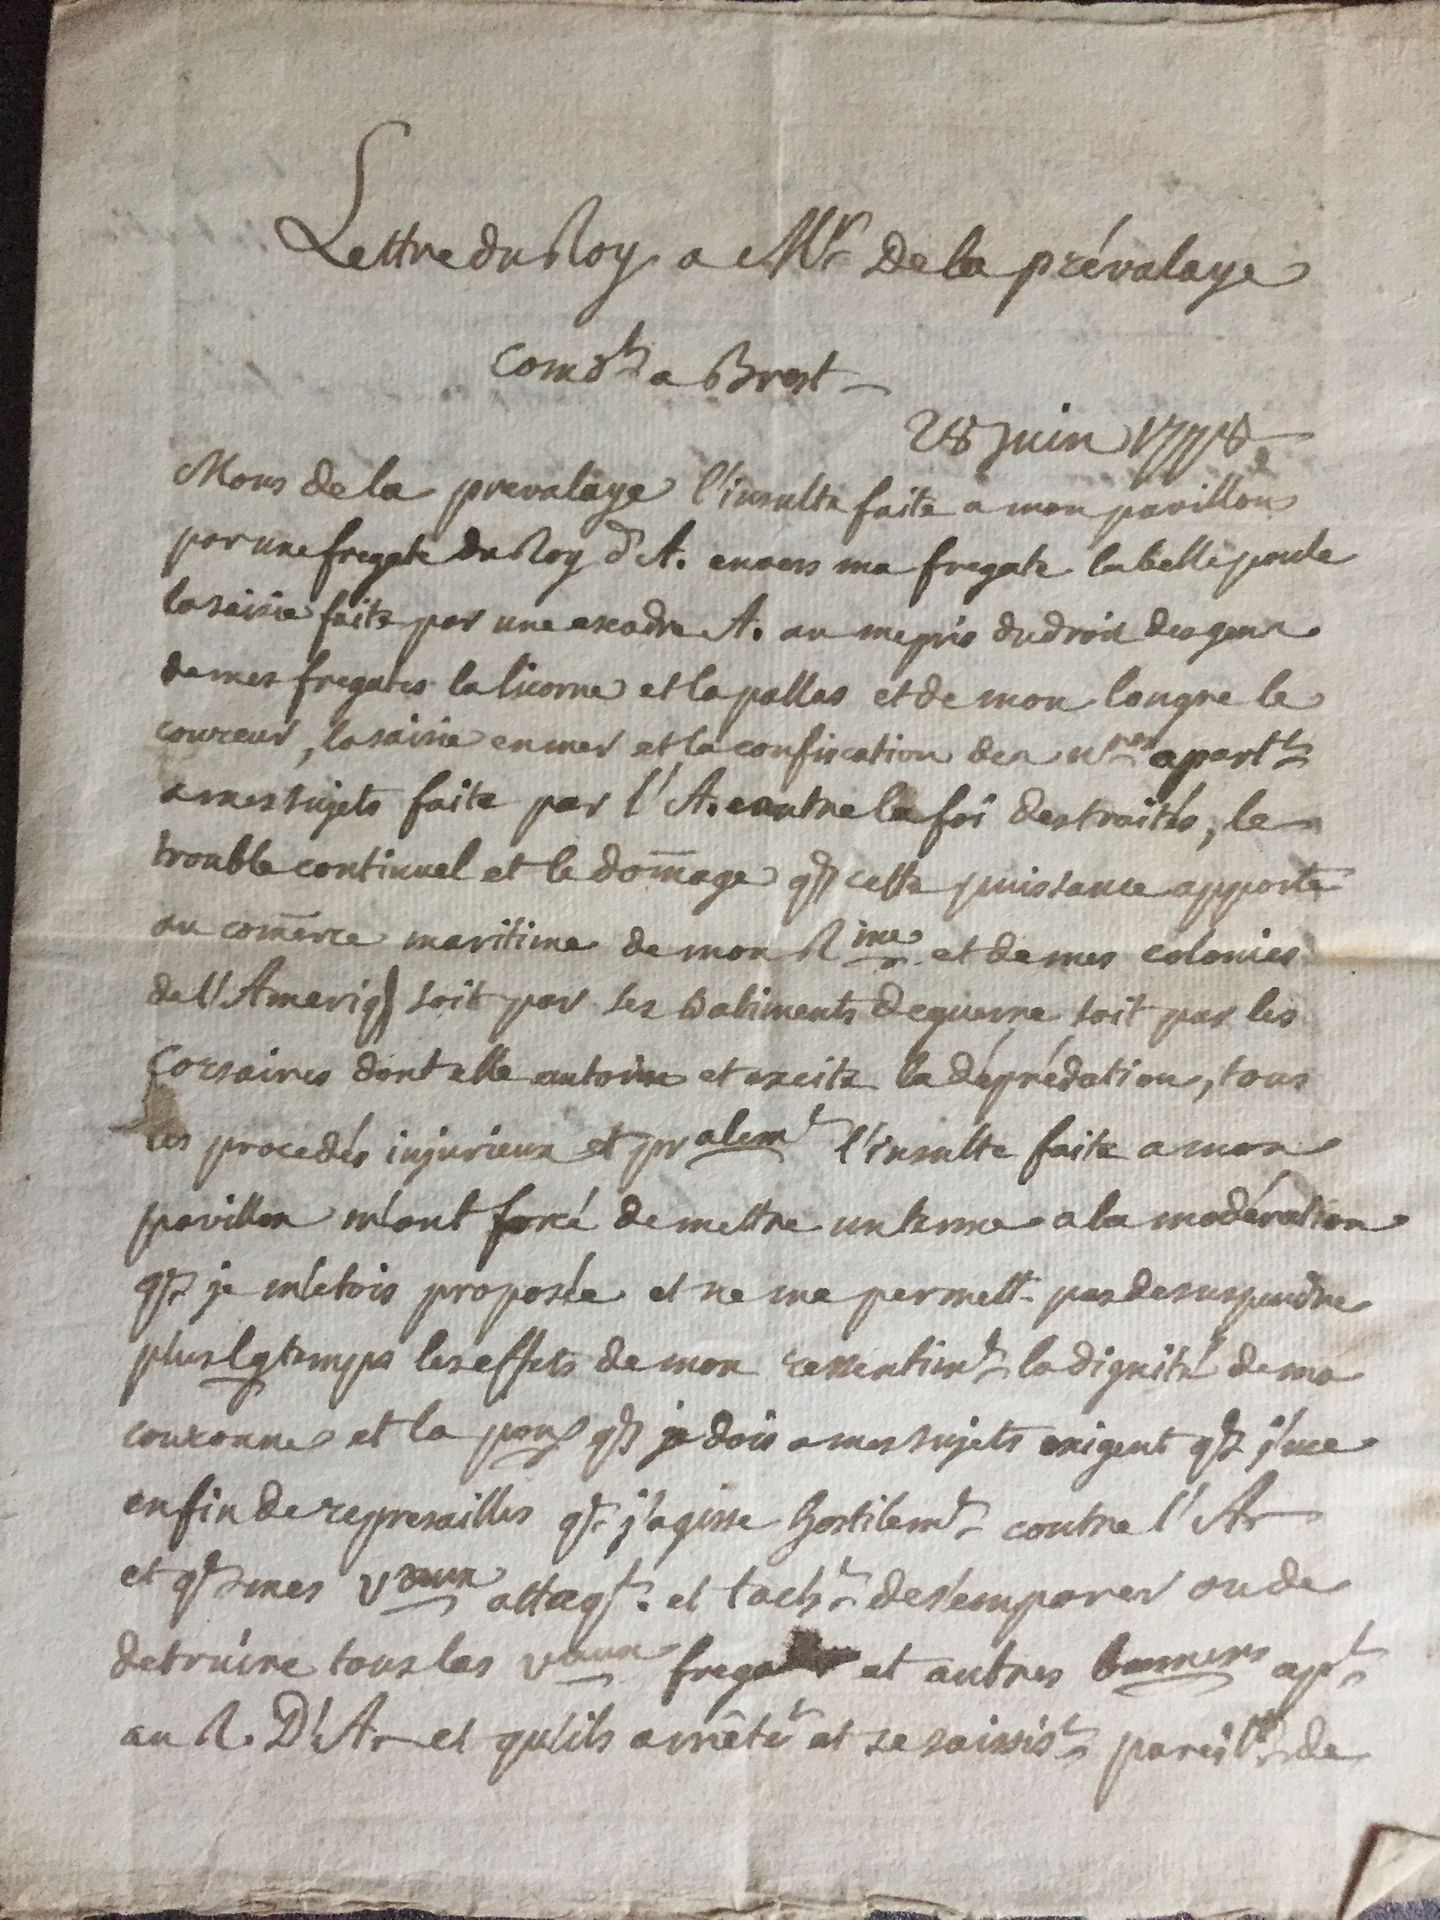 Lettre du Roy a Mr De la prévalaye
Comdt a Brest
28 juin 1778
Mons de la prevalaye l'insulte faite a mon pavillon
par une fregate du Roy d'A. envers ma fregate la belle poule
la saisie faite par une escadre A. au mepris du droit des gens
de mes fregates la licorne et la pallas et de mon lougre le
coureur, la saisie en mer et la confiscation des nres apartts
a mes sujets faite par l'A. contre la foi des traités, le
trouble continuel et le dom̄age q̃ cette puissance apporte
au com̄erce maritime de mon Rme et de mes colonies
de l'Ameriq̃ soit par ses batiments de guerre soit par les
Corsaires dont elle autorise et excite la déprédation, tous
ces procedés injurieux et pralemt l'insulte faite a mon
pavillon m'ont forcé de mettre un terme a la modération
q̃ je m'etois proposée et ne me permettt pas de suspendre
plus lgtemps les effets de mon ressentimt la dignité de ma
couronne et la q̃ je dois a mes sujets exigent q̃ j'use
enfin de represailles q̃ j'agisse hostilemt contre l'Ar
et q̃ mes vaux attaqt. et tacht des'emparer ou de
detruire tous les vaux fregates et autres apt
au R. D'Ar et qu'ils arrêtt et se saisisst pareillt de